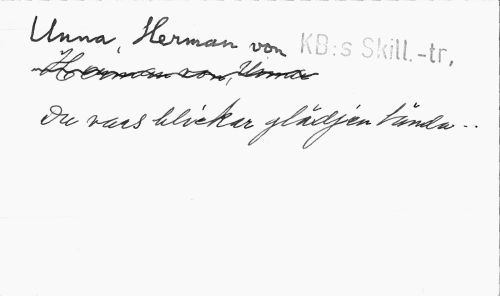 Unna, Herman von KB:s Skill.-tr,
Herman von, Unna
Du vars blickar glädjen tända..